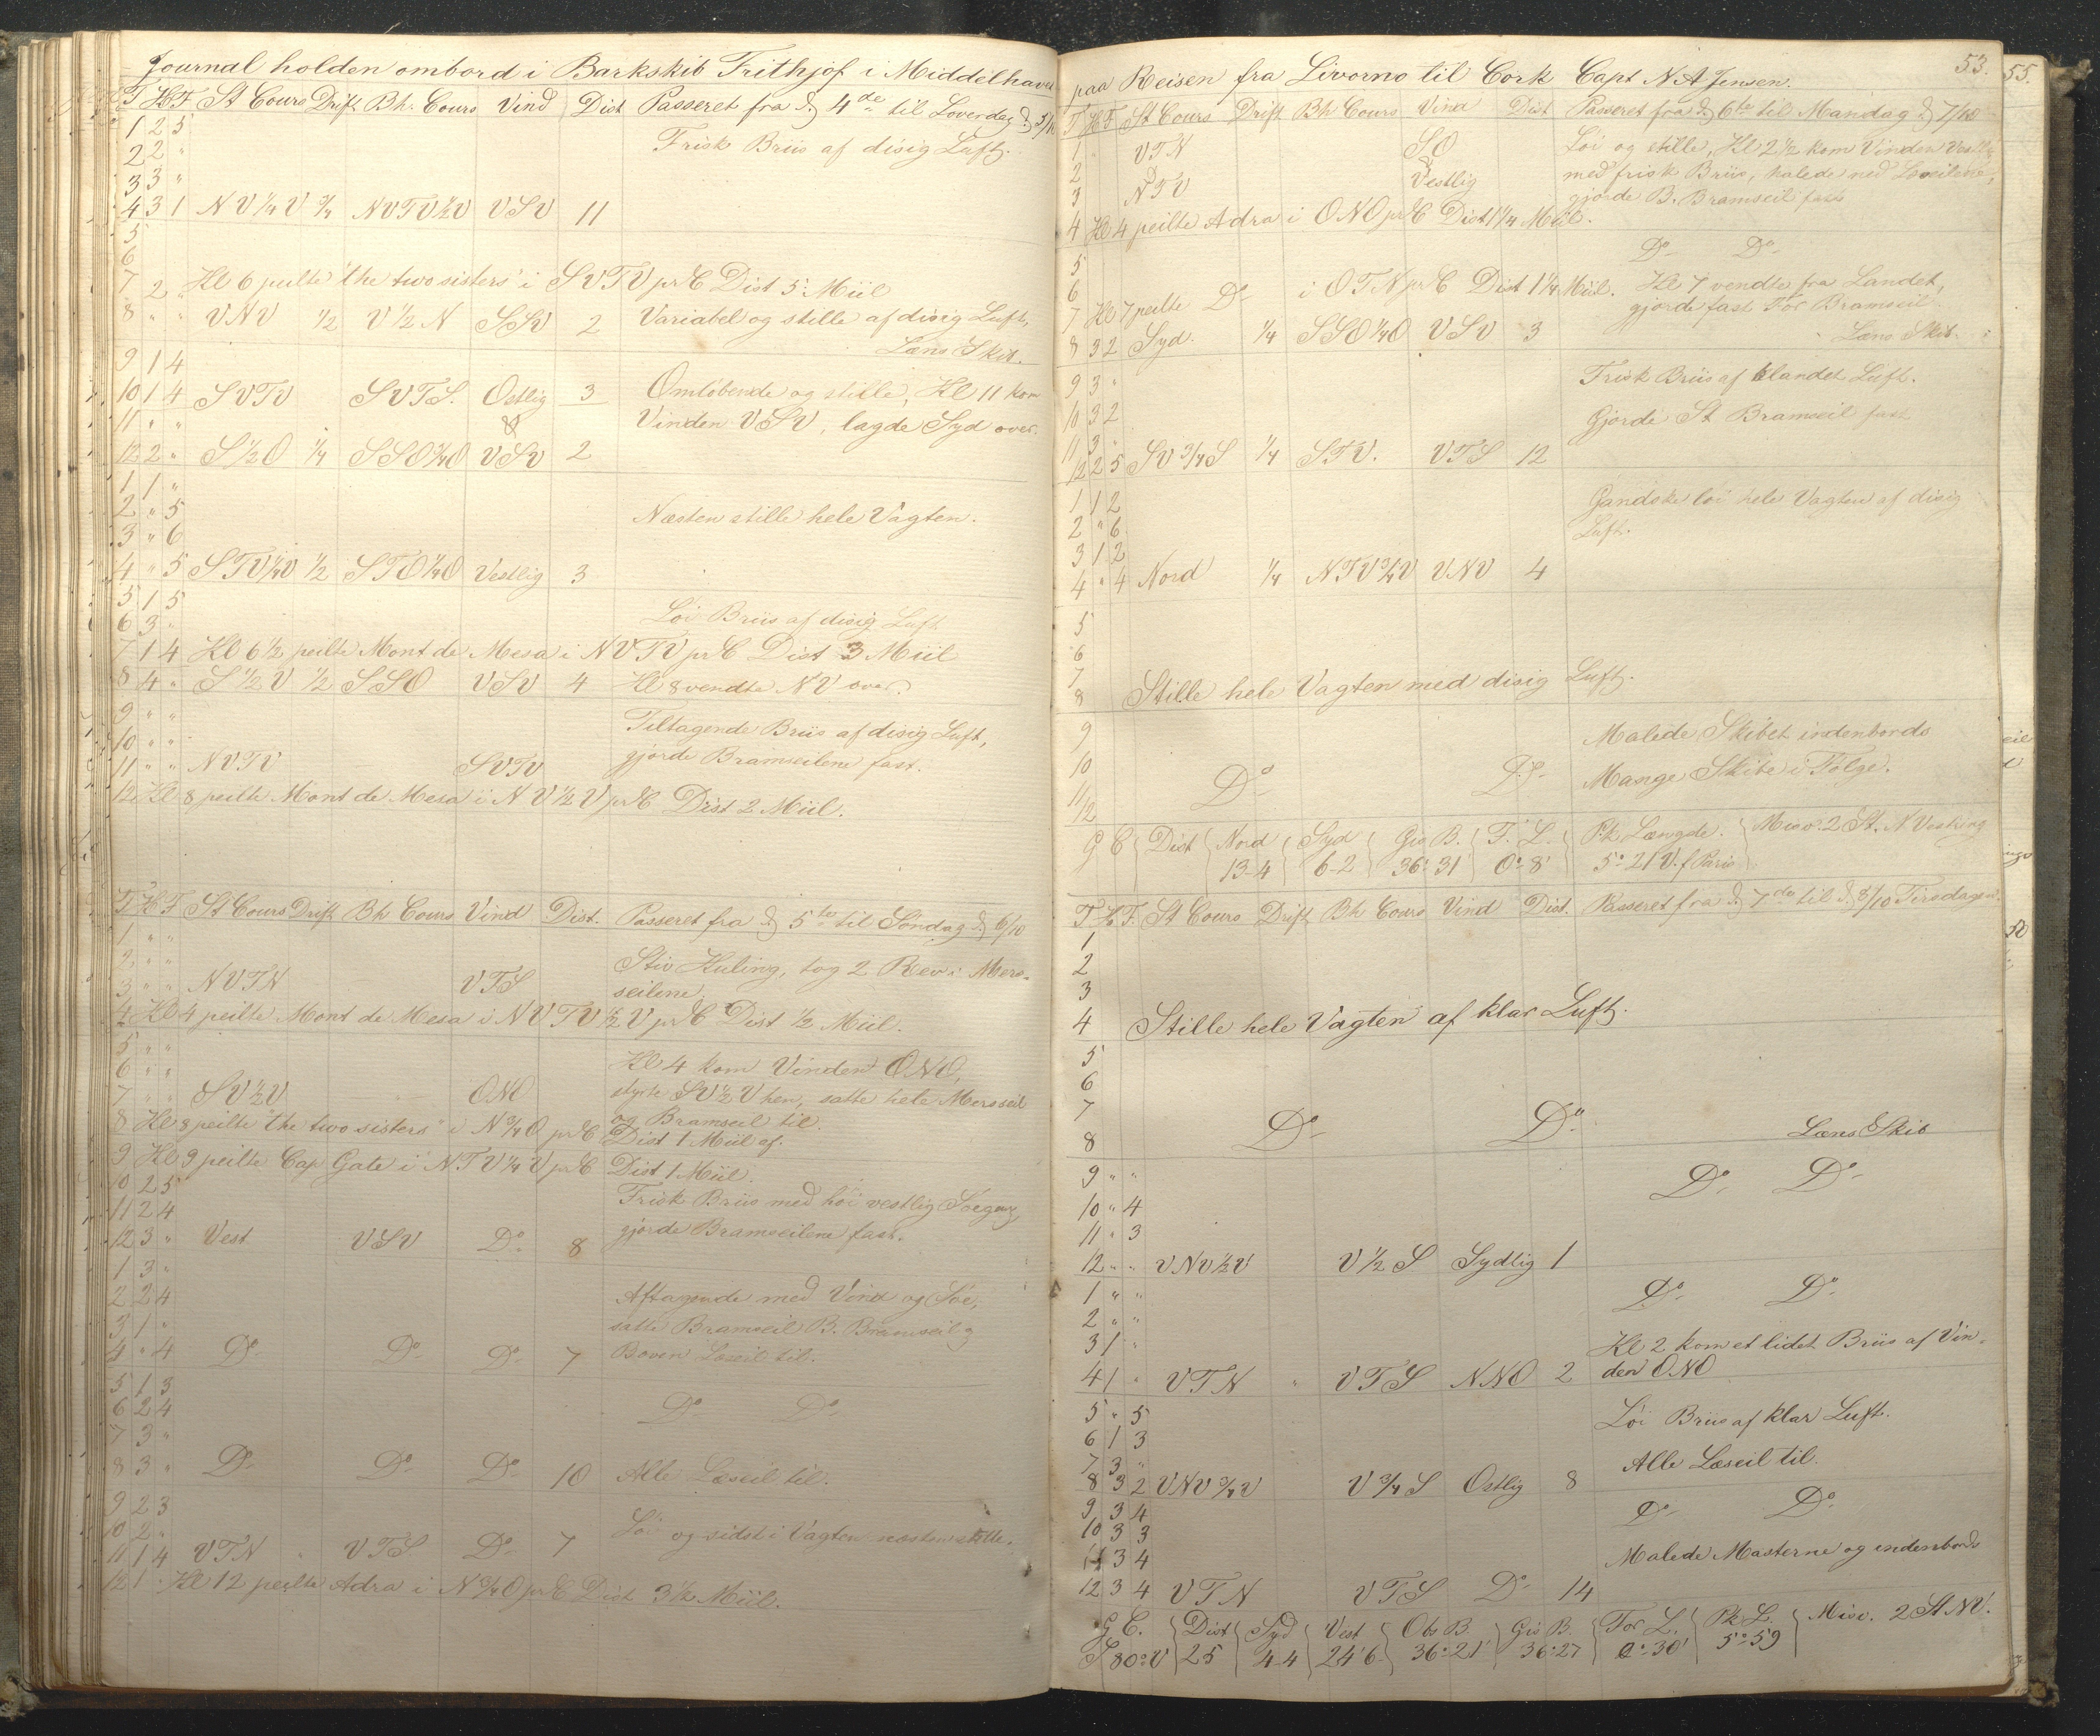 Journal holden ombord i Barkskib Frithjof i Middelhavet
T H F St Cours Drift Bh. Cours Vind Dist Passeret fra d. 4de til Löverdag d. 5/10
1 2 5
2 2 "
Frisk Briis af disig Luft.
3 3 "
4 3 1 NV 1/4 V 3/4 NVTV 1/2 V VSV 11
5
6
7 2 " Kl 6 peilte "the two sisters" i SVTV pr C Dist 5 Miil
8 " " VNV 1/2 V 1/2 N SSV 2 Variabel og stille af disig Luft,
Læns Skib.
9 1 4
10 1 4 SVTV SVTS. Ostlig 3 Omlöbende og stille, Kl 11 kom
11 " " & Vinden VSV, lagde Syd over.
12 2 " S 1/2 O 1/4 SSO 3/4 O VSV 2
1 1 "
2 " 5 Næsten stille hele Vagten.
3 " 6
4 " 5 STV 1/4 V 1/2 STO 1/4 O Vestlig 3
5 1 5
6 3 " Löi Briis af disig Luft
7 1 4 Kl 6 1/2 peilte Mont de Mesa i NVTV pr C Dist 3 Miil
8 4 " S 1/2 V 1/2 SSO VSV 4 Kl 8 vendte NV over.
9 " "
Tiltagende Briis af disig Luft,
10 " "
11 " " NVTV SVTV gjorde Bramseilene fast.
12 Kl 8 peilte Mont de Mesa i NV 1/2 V pr C Dist 2 Miil.
T H F St Cours Drift Bh Cours Vind Dist. Passeret fra d. 5te til Söndag d. 6/10
1 " "
2 " " Stiv Kuling, tog 2 Rev i Mers-
3 " " NVTN VTS seilene.
4 Kl 4 peilte Mont de Mesa i NVTV 1/2 V pr C Dist 1/2 Miil.
5 " "
6 " " Kl 4 kom Vinden ONO,
7 " " SV 1/2 V ONO styrte SV 1/2 V hen, satte hele Mersseil
og Bramseil til.
8 Kl 8 peilte "the two sisters" i N 3/4 O pr C Dist 1 Miil af.
9 Kl 9 peilte Cap Gate i NTV 1/4 V pr C Dist 1 Miil.
10 2 5
11 2 4 Frisk Briis med höi vestlig Söegang,
12 3 " Vest VSV Do 8 gjorde Bramseilene fast.
1 3 "
2 2 4 Aftagende med Vind og Söe,
3 1 " satte Bramseil B. Bramseil og
4 " 4 Do Do Do 7 Boven Læseil til.
5 1 3
6 2 4 Do Do
7 3 "
8 3 " Do Do Do 10 Alle Læseil til.
9 2 3
10 2 " Löi og sidst i Vagten næsten stille.
11 1 4 VTN " VTS Do 7
12 1 " Kl 12 peilte Adra i N 3/4 O pr C Dist 3 1/2 Miil.
53.
55.
paa Reisen fra Livorno til Cork Capt N. A Jensen.
T H F St Cours Drift Bh Cours Vind Dist Passeret fra d. 6te til Mandag d. 7/10
1 " VTN SO Löi og stille, Kl 2 1/2 kom Vinden Vestlig
2 & & med frisk Briis, halede ned Læseilene,
3 NTV Vestlig gjorde B. Bramseil fast
4 Kl 4 peilte Adra i ONO pr C Dist 1 1/4 Miil.
5 Do Do
6
7 Kl 7 peilte Do i OTN pr C Dist 1 1/4 Miil. Kl 7 vendte fra Landet,
gjorde fast For Bramseil
8 3 2 Syd. 1/4 SSO 1/4 O VSV 3 Læns Skib.
9 3 " Frisk Briis af blandet Luft.
10 3 2 Gjorde St Bramseil fast
11 3 "
12 2 5 SV 3/4 S 1/4 STV. VTS 12
1 1 2 Gandske löi hele Vagten af disig
2 " 6 Luft.
3 1 2
4 " 4 Nord 1/4 NTV 3/4 V VNV 4
5
6
7
8 Stille hele Vagten med disig Luft.
9 Malede Skibet indenbords
10 Do Do Mange Skibe i Fölge.
11
12
G C Dist Nord Syd Gis B. F. L. Pk. Længde. Misv. 2 St. N Vest og
13-4 6-2 36° 31' 0° 8' 5° 21 V. f Paris
T H F. St Cours Drift Bh Cours Vind Dist. Passeret fra d. 7de til d. 8/10 Tirsdag
1
2
3
4 Stille hele Vagten af klar Luft.
5
6
7 Do Do
8 Læns Skib
9 " " Do Do
10 " 4
11 " 3
12 " " VNV 1/2 V V 1/2 S Sydlig 1
1 " " Do Do
2 " "
3 1 " Kl 2 kom et lidet Briis af Vin-
4 1 " VTN " VTS NNO 2 den ONO
5 " 5 Löi Briis af klar Luft.
6 1 3
7 3 " Alle Læseil til.
8 3 2 VNV 3/4 V V 3/4 S Ostlig 8
9 3 4 Do Do
10 3 3
11 3 4 Malede Masterne og indenbords
12 3 4 VTN VTS Do 14
G C. Dist Syd Vest Obs B. Gis B. For L. Pk L. Misv. 2 St NV.
S 80° V 25 4-4 24'6 36°21' 36°27 0°30' 5°59